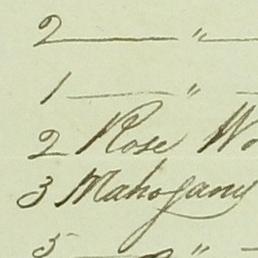 2 —— "
1 —— "
2 Rose Wo
3 Mahogany
5 "